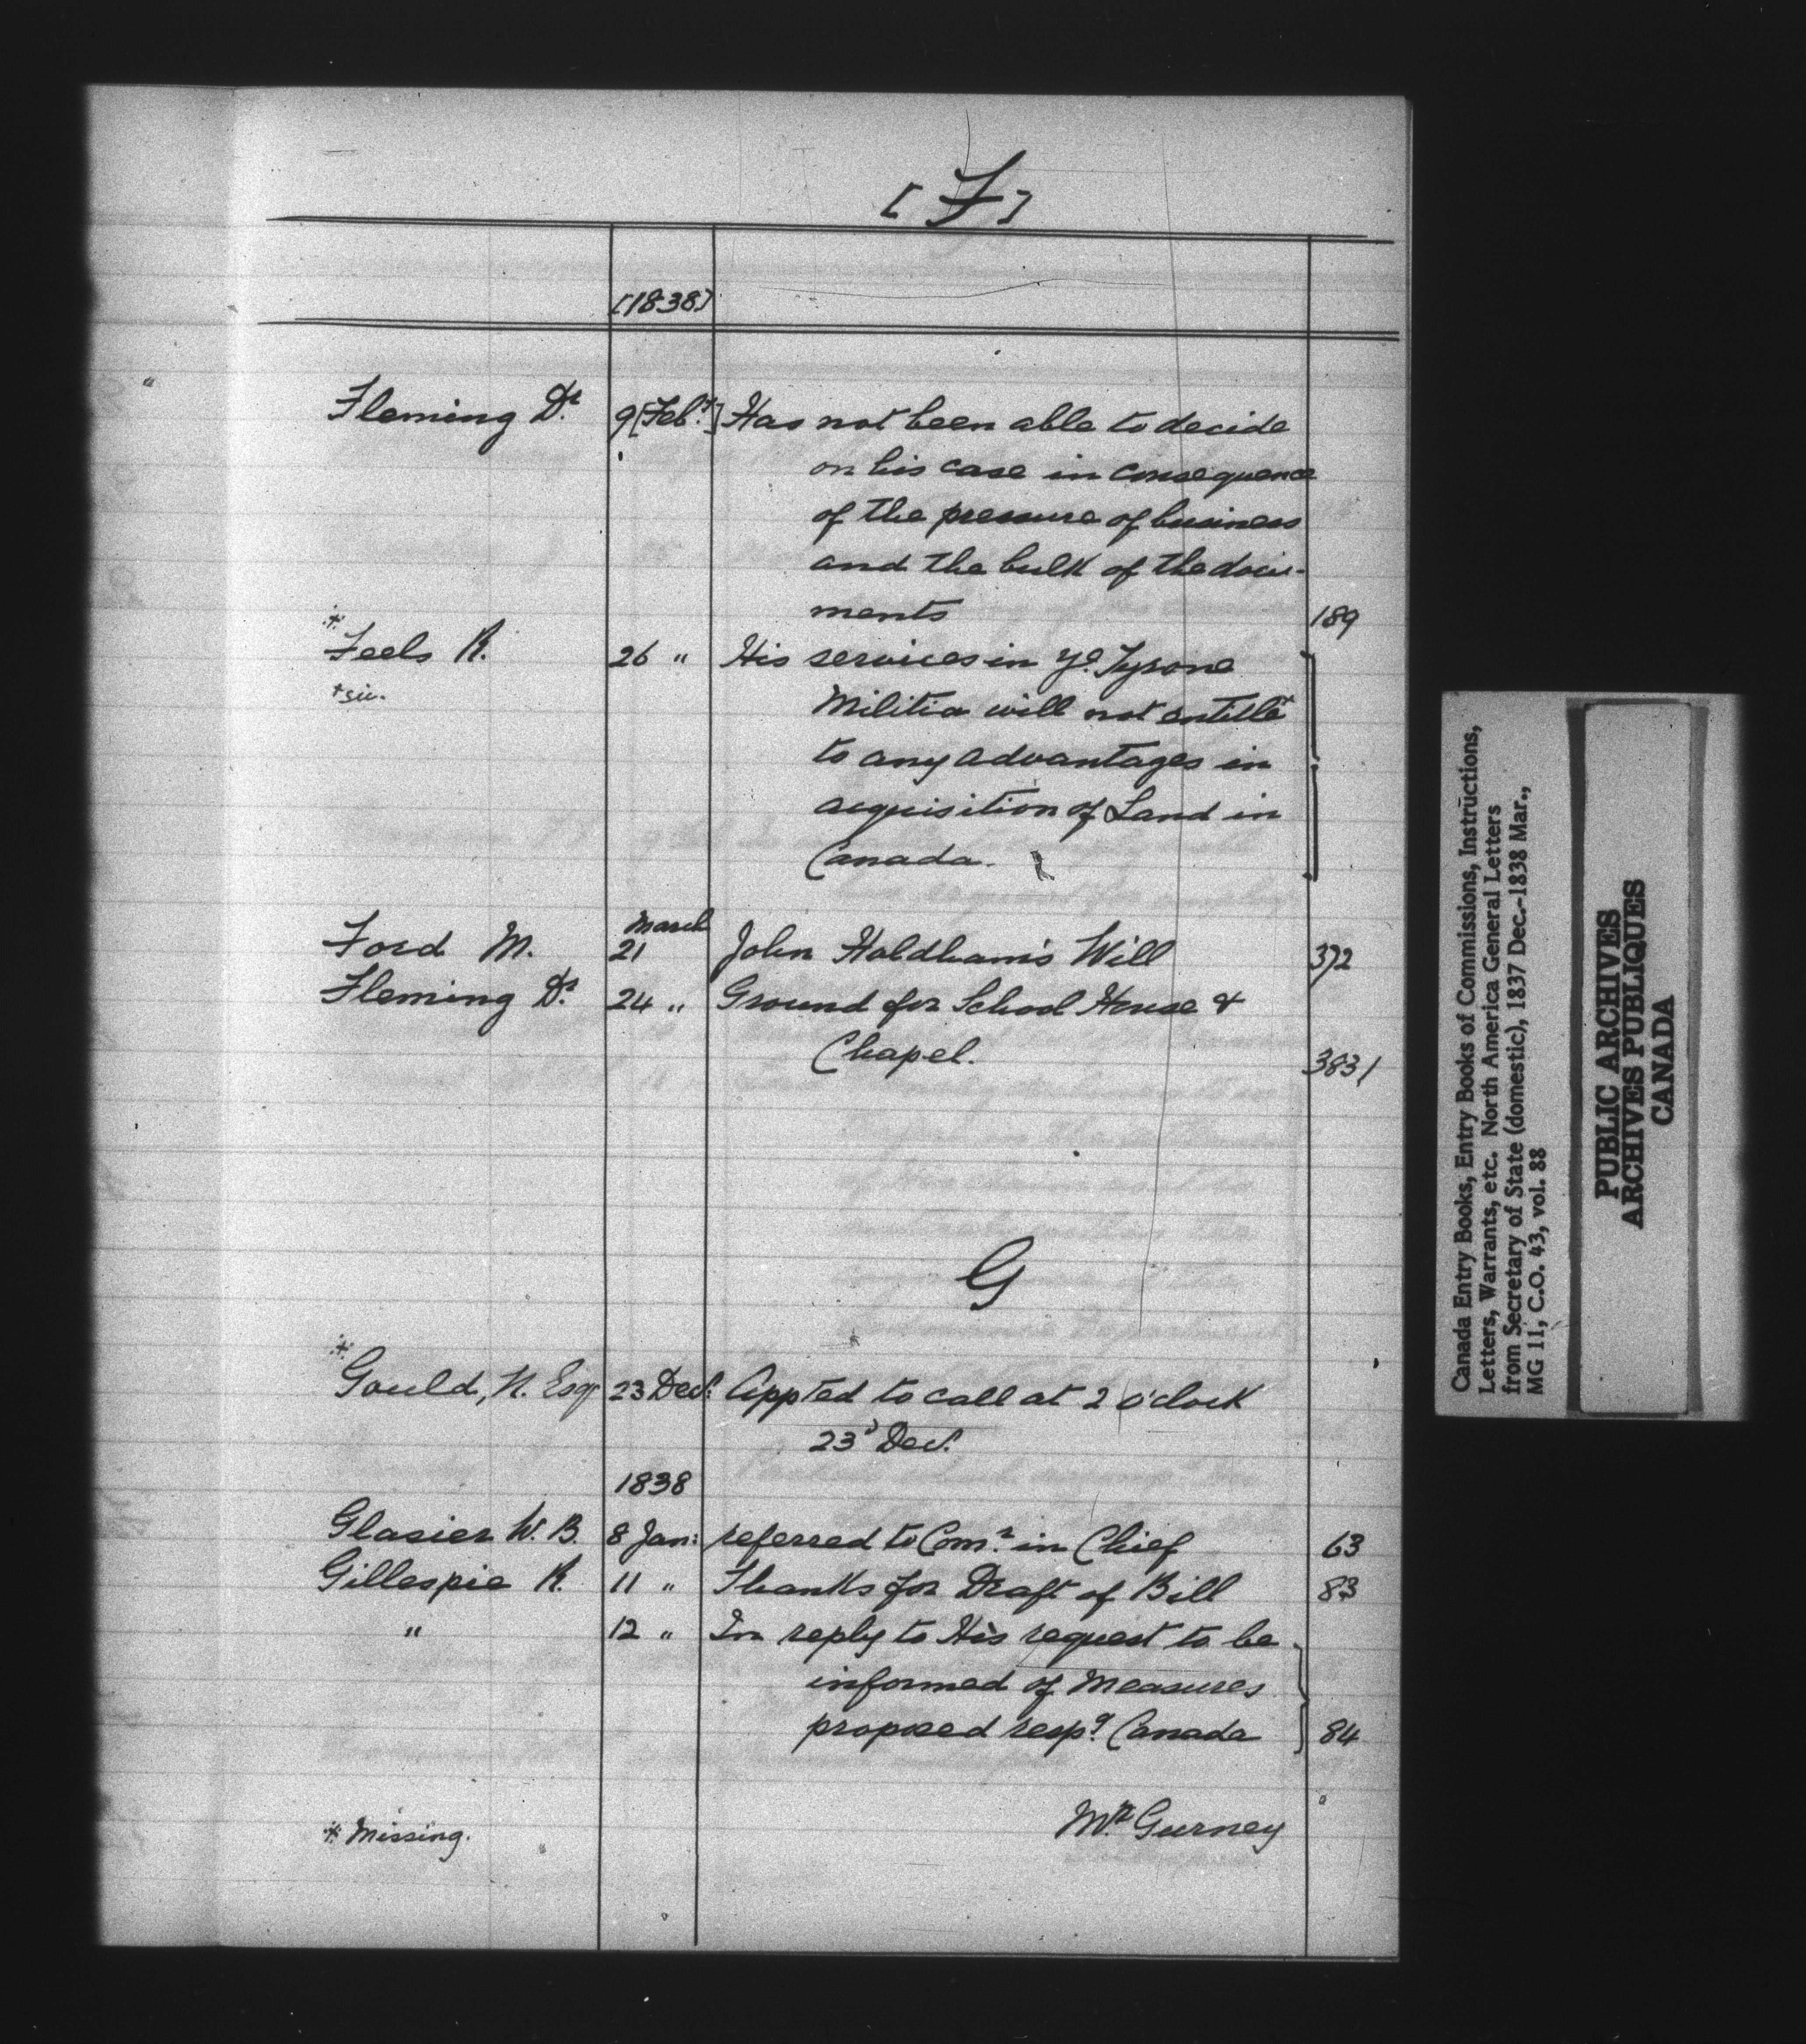 [F]
[1838]
Fleming Dr. 9 [Feby.] Has not been able to decide
on his case in consequence
of the pressure of business
and the bulk of the docu-
ments 189
* Feels R. 26 " His services in ye. Tyrone
+ sic. Militia will not entitle+
to any advantages in
acquisition of Land in
Canada.
March
Ford M. 21 John Holdham's Will 372
Fleming Dr. 24 " Ground for School House &
Chapel. 383/
G
* Gould, N. Esqr 23 Decr. Appted to call at 2 o'clock
23d Decr.
1838
Glasier W. B. 8 Jan: referred to Comr. in Chief 63
Gillespie R. 11 " Thanks for Draft of Bill 83
" 12 " In reply to His request to be
informed of Measures
proposed respg. Canada 84
* Missing.
Mr. Gurney
Canada Entry Books, Entry Books of Commissions, Instructions,
Letters, Warrants, etc. North America General Letters
from Secretary of State (domestic), 1837 Dec.-1838 Mar.,
MG 11, C.O. 43, vol. 88
PUBLIC ARCHIVES
ARCHIVES PUBLIQUES
CANADA